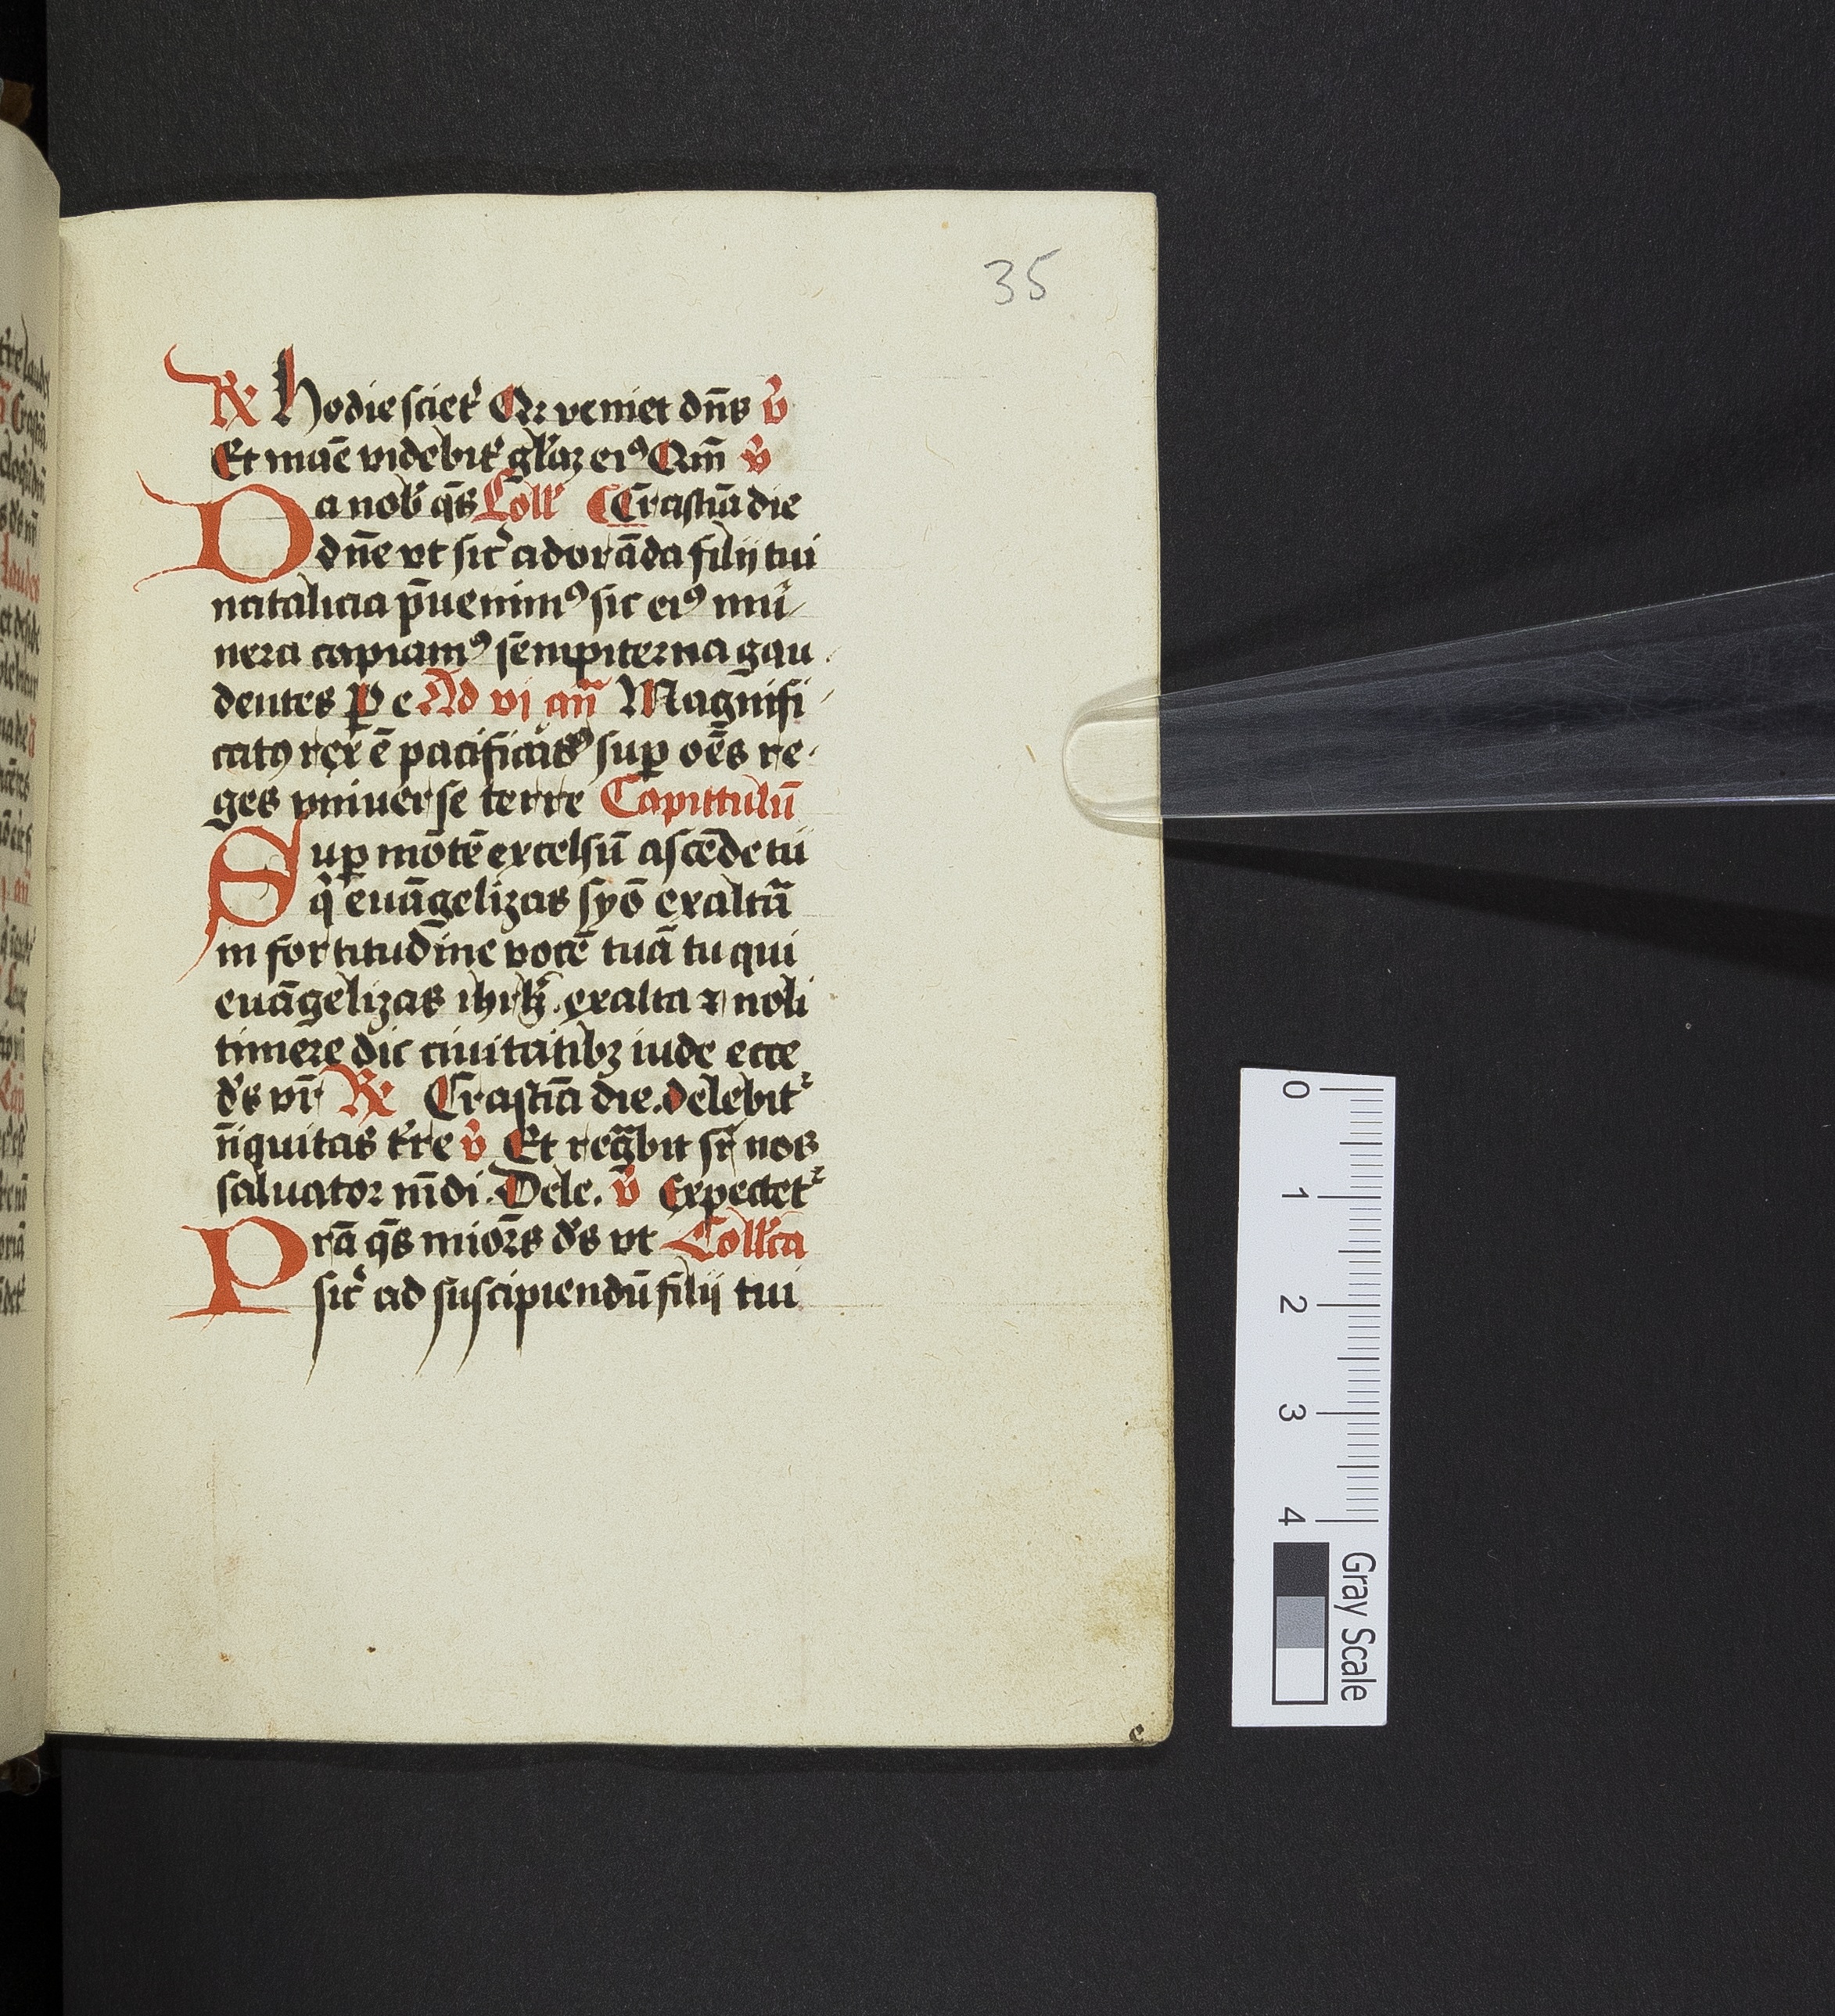 35
R hodie sciet᷑ Qr veniet dn̄s v̄
Et manē videbit᷑ gl̄az ei⁹ Qm̄ v̄
Da nob᷑ qs̄ Coll᷑ Crastīa die
dn̄e vt sic᷑ adorāda filij tui
natalicia p̄uenim⁹ sic ei⁹ mu
nera capiam⁹ sempiterna gau
dentes Ꝑ e Ad vj an̄ Magnifi
catꝯ rex ē pacific᷑us sup oēs re
ges vniuerse terre Capittulū
Sup mōtē excelsū ascēde tu
q᷑ euāgelizas syō exalta
in fortitudīne vocē tuā tu qui
euāgelizas ihrl̄ꝫ exalta ⁊ noli
timere dic ciuitatibꝫ iude ecce
ds̄ vr̄ R Crastīa die. delebit᷑
īiquitas t᷑re v̄ Et regᷓbit sr̄ nos
saluator mūdi. Dele. v̄ Expectet᷑
Prā qs̄ miōrs ds̄ vt Coll᷑ca
sic᷑ ad suscipiendū filij tui
e
0
1
2
3
4
Gray Scale